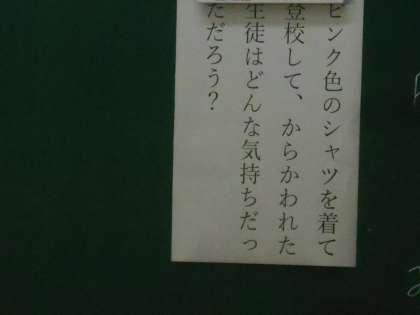 ピンク色のシャツを着て
登校して、からかわれた
生徒はどんな気持ちだっ
ただろう？